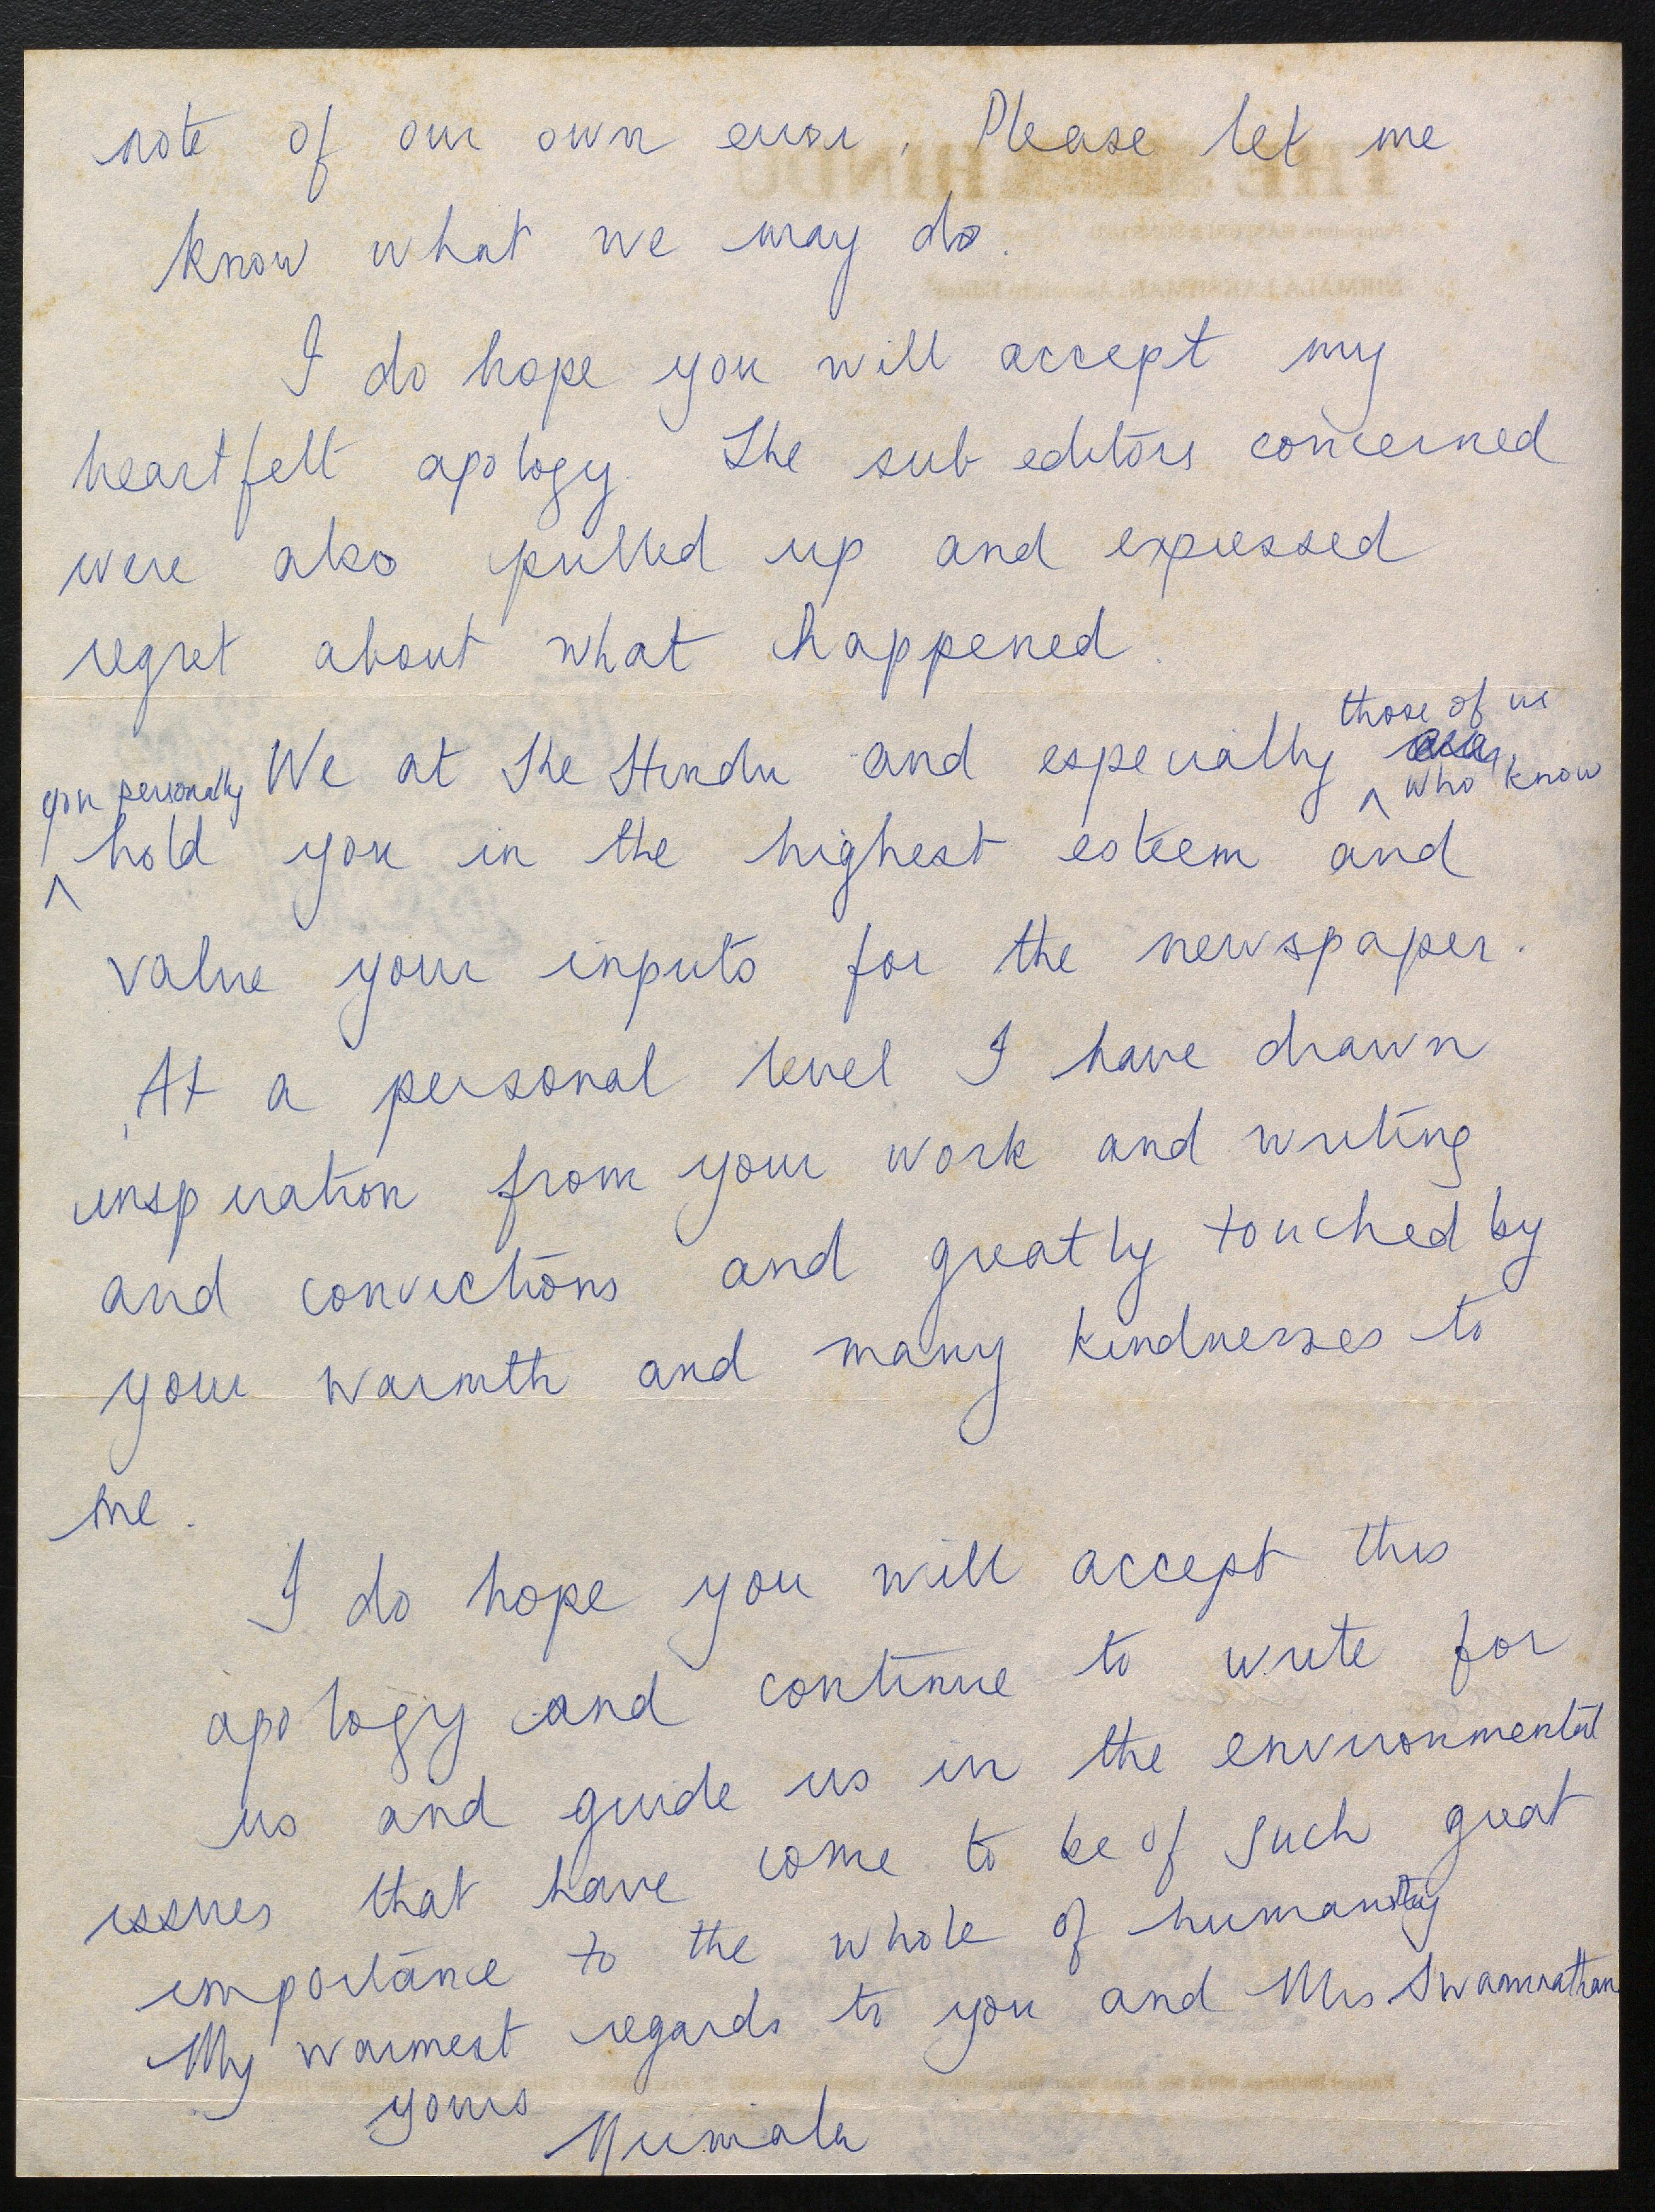 note of our own error. Please let me
know what we may do.
I do hope you will accept my
heartfelt apology. The sub editors concerned
were also pulled up and expressed
regret about what happened.
those of us
We at The Hindu and especially who know
you personally
hold you in the highest esteem and
value your inputs for the newspaper.
At a personal level I have drawn
inspiration from your work and writing
and convictions and greatly touched by
your warmth and many kindnesses to
me.
I do hope you will accept this
apology and continue to write for
us and guide us in the environmental
issues that have come to be of such great
importance to the whole of humanity
My warmest regards to you and Mrs. Swaminathan
yours
Nirmala
THE HINDU
NIRMALA LAKSHMAN, Associate Editor